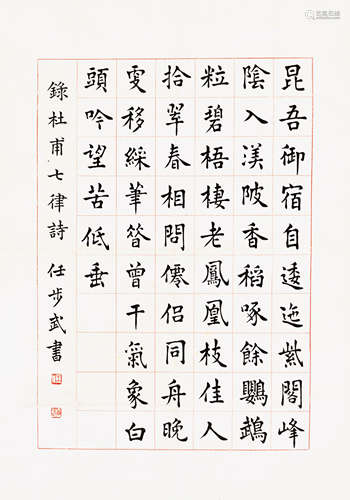 昆吾御宿自逶迤紫閣峰
陰入渼陂香稻啄餘鸚鵡
粒碧梧棲老鳳凰枝佳人
拾翠春相問僊侶同舟晚
更移綵筆昔曾干氣象白
頭吟望苦低垂
錄杜甫七律詩 任步武書